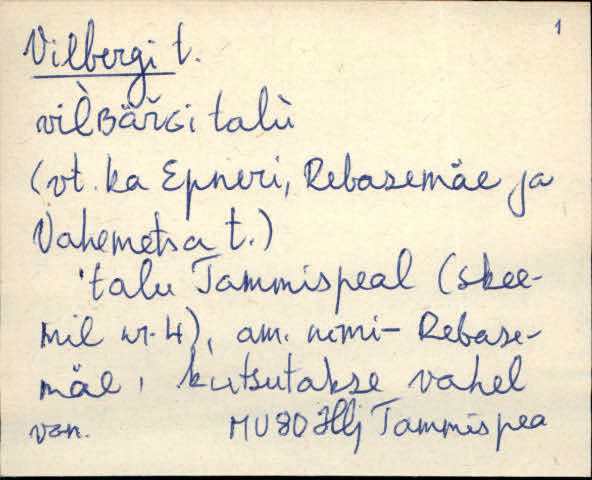 1
Vilbergi t.
vìlʙäřɢi talù
(vt. ka Epneri, Rebasemäe ja
Vahemetsa t.)
'talu Tammispeal (skee-
mil nr. 4), am. nimi - Rebase-
mäe, kutsutakse vahel
van. MU 80 Hlj Tammispea